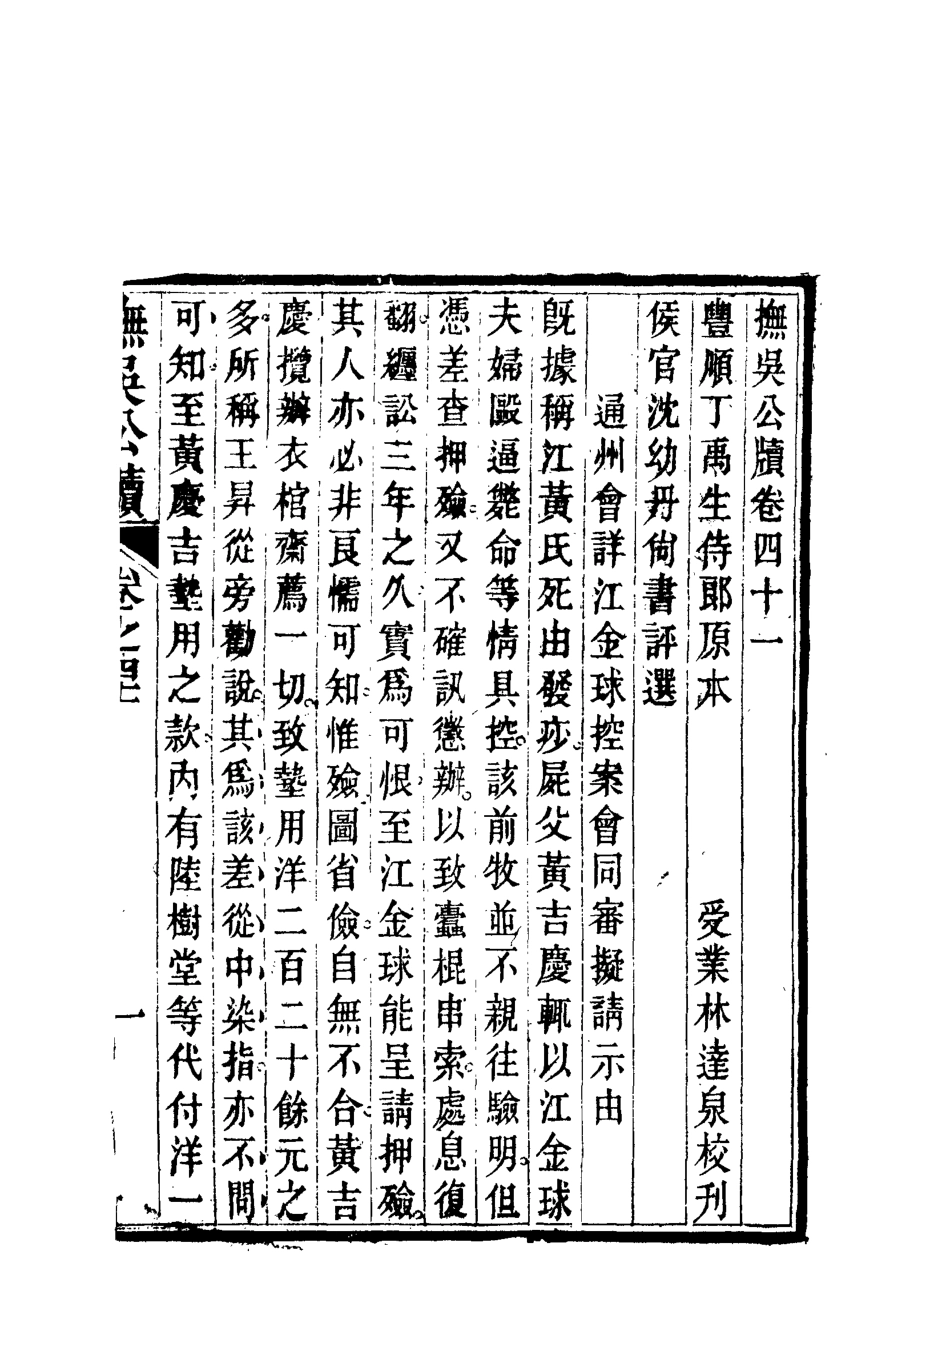 撫吳公牘卷四十一
豐順丁禹生侍郎原本　受業林達泉校刊
侯官沈幼丹尙書評選
通州會詳江金球控案會同審擬請示由
旣據稱江黃氏死由發痧屍父黃吉慶輒以江金球
夫婦毆逼斃命等情具控。該前牧並不親往驗明。但
憑差查押殮。又不確訊懲辦。以致蠹棍串索。處息復
翻。纏訟三年之久實爲可恨至江金球能呈請押殮。
其人亦必非良懦可知。惟殮圖省儉。自無不合。黃吉
慶攬辦衣棺齋薦一切。致墊用洋二百二十餘元之
多。所稱王昇從旁勸說。其爲該差從中染指。亦不問
可知。至黃慶吉墊用之款。內有陸樹堂等代付洋一
撫吳公牘　卷之四十一　一